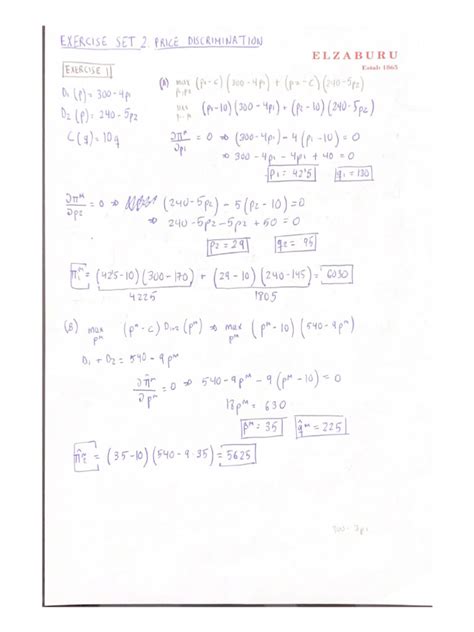 EXERCISE SET 2. PRICE DISCRIMINATION
ELZABURU
Estab 1865
EXERCISE 1
D₁(p) = 300-4p₁
D₂(p) = 240-5p₂
C(q) = 10q
(A) max p₁,p₂ (p₁-c)(300-4p₁) + (p₂-c)(240-5p₂)
max p₁,p₂ (p₁-10)(300-4p₁) + (p₂-10)(240-5p₂)
∂πᴹ/∂p₁ = 0 ⇒ (300-4p₁) - 4(p₁-10) = 0
⇒ 300-4p₁-4p₁+40 = 0
p₁ = 42'5 q₁ = 130
∂πᴹ/∂p₂ = 0 ⇒ (240-5p₂) - 5(p₂-10) = 0
⇒ 240-5p₂-5p₂+50 = 0
p₂ = 29 q₂ = 95
πᴹ = (42'5-10)(300-170) + (29-10)(240-145) = 6030
4225 1805
(B) max pᴹ (pᴹ-c) D₁₊₂(pᴹ) ⇒ max pᴹ (pᴹ-10)(540-9pᴹ)
D₁+D₂ = 540-9pᴹ
∂π̂ᴹ/∂pᴹ = 0 ⇒ 540-9pᴹ-9(pᴹ-10) = 0
18pᴹ = 630
p̂ᴹ = 35 q̂ᴹ = 225
π̂ᴹ = (35-10)(540-9·35) = 5625